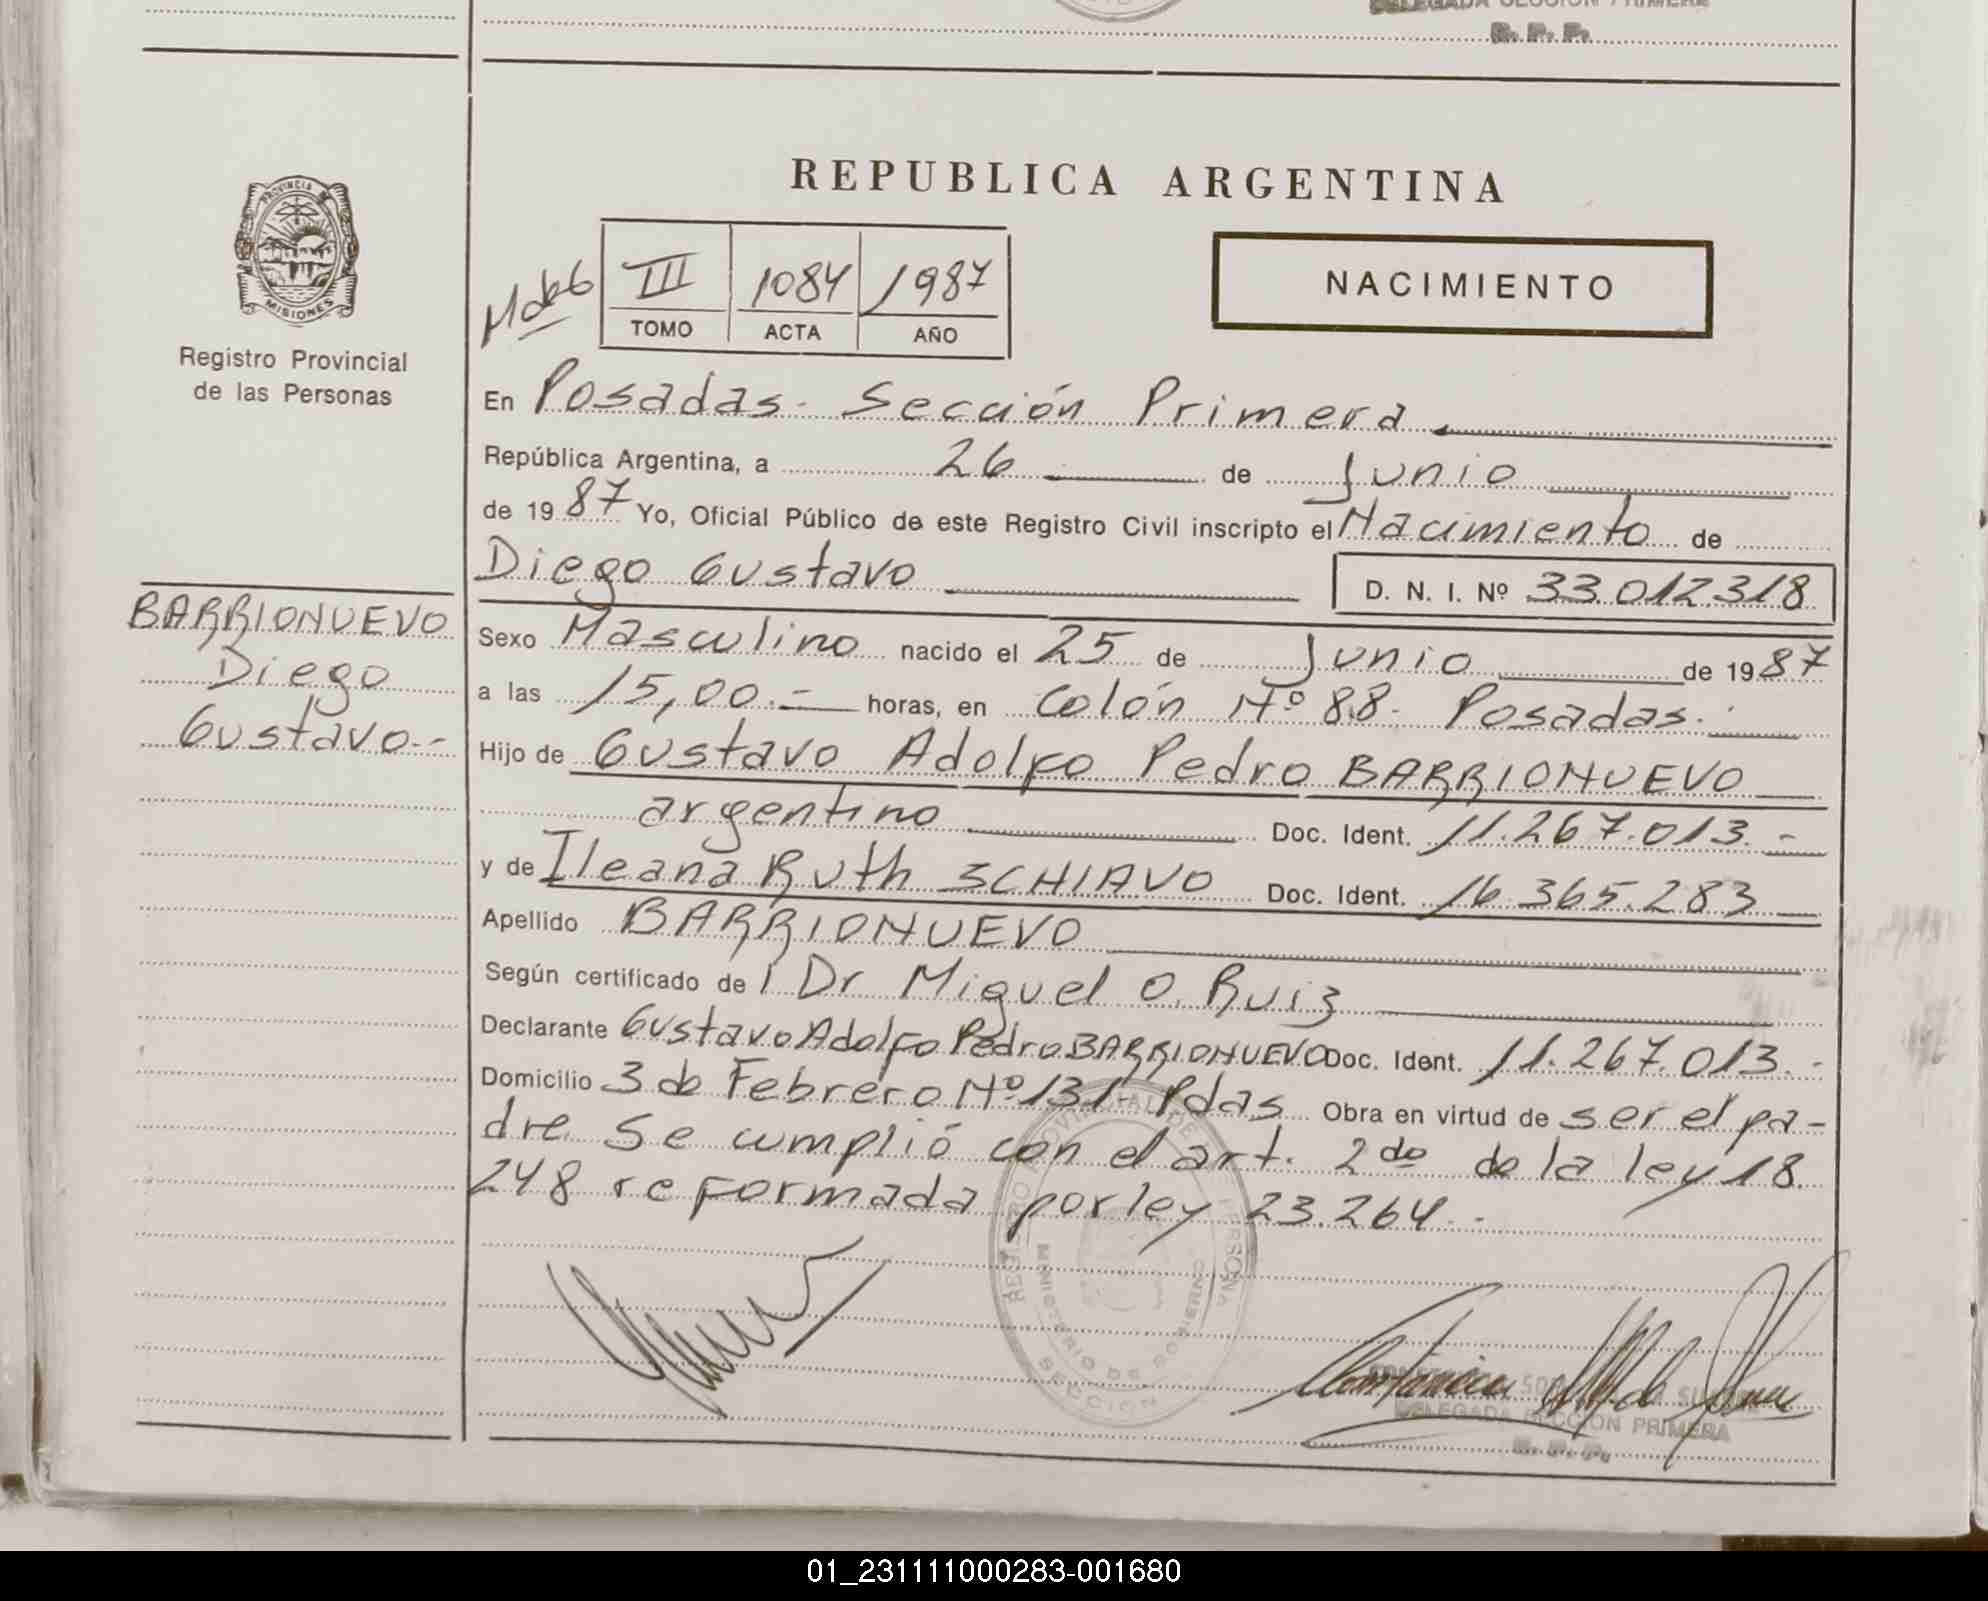 DELEGADA SECCION PRIMERA
R. P. P.
REPUBLICA ARGENTINA
PROVINCIA DE
MISIONES
Registro Provincial
de las Personas
III
1084
1987
TOMO
ACTA
AÑO
NACIMIENTO
En Posadas - Sección Primera
República Argentina, a 26 de Junio
de 1987 Yo, Oficial Público de este Registro Civil inscripto el Nacimiento de
Diego Gustavo
D. N. I. Nº 33.012.318
BARRIONUEVO
Diego
Gustavo.-
Sexo Masculino nacido el 25 de Junio de 1987
a las 15,00.- horas, en Colón Nº 88 - Posadas.
Hijo de Gustavo Adolfo Pedro BARRIONUEVO
argentino Doc. Ident. 11.267.013.-
y de Ileana Ruth SCHIAVO Doc. Ident. 16.365.283
Apellido BARRIONUEVO
Según certificado del Dr Miguel O. Ruiz
Declarante Gustavo Adolfo Pedro BARRIONUEVO Doc. Ident. 11.267.013.-
Domicilio 3 de Febrero Nº 131 - Pdas Obra en virtud de ser el pa-
dre. Se cumplió con el art. 2do de la ley 18.
248 reformada por ley 23.264.-
REGISTRO PROVINCIAL DE PERSONA
MINISTERIO DE GOBIERNO
SECCION
DELEGADA SECCION PRIMERA
R. P. P.
01_231111000283-001680